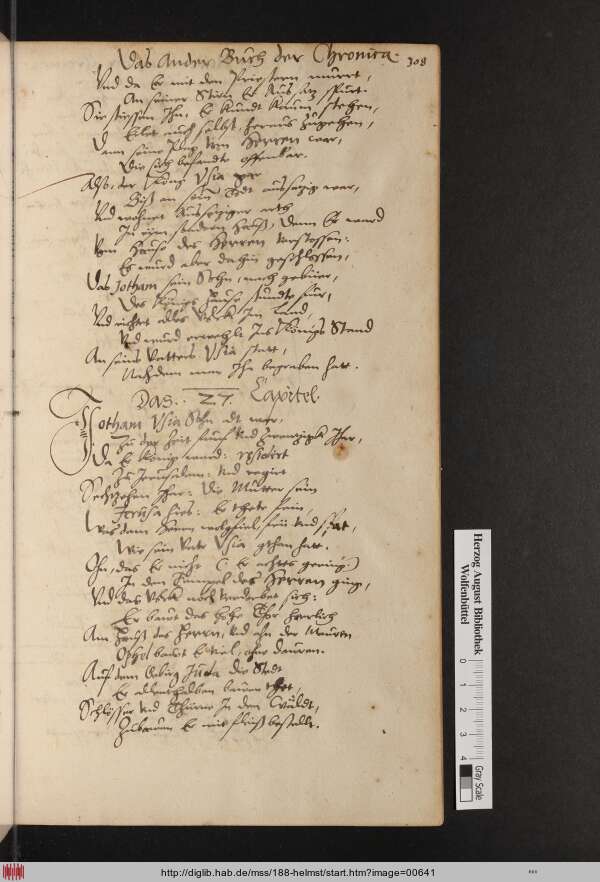 Das Ander Buch der Chronica. 308
Vnd da Er mit den Priestern murret,
An seiner Stirn Er Aussatz spürt.
Sie stiessen Ihn, Er kundt kaum stehen,
Eilet auch selbst heraus zu gehen,
Denn seine Plag vom Herren war,
Die sich befandte offenbar.
Also der König Vsia
Biß an sein Todt aussetzig war,
Vnd wohnet
In eim sondern Hauß, denn Er ward
Vom Hause des Herren verstossen:
Er ward aber dahin geschlossen,
Das Jotham sein Sohn, nach gebüer,
Des Königs Hause stundte für,
Vnd richtet alles Volck Im Land,
Vnd ward erwehlt Ins Königs Stand
An seins Vatters Vsia statt,
Nachdem man Ihn begraben hatt.
Das. 27. Capitel.
Jotham Vsia Sohn alt war,
Zu der Zeit fünff vnd zwanzigk Jhar,
Da Er König ward: resideirt
Zu Jerusalem: vnd regirt
Sechtzehen Jhar: Die Mutter sein
Jerusa hies: Er thete fein,
Was dem Herrn wolgfiel, früe vnd spat,
Wie sein Vater Vsia gthan hatt.
On, das Er nicht (Er achtets gering)
In den Tempel des Herren ging,
Vnd das Volck noch verderbet sich:
Er bauet das hohe Thor herrlich
Am Hauß des Herrn, vnd ahn der Mauren
Ophel bauet Er viel, ohne dauren.
Auf dem Gebirg Juda die Stedt
Er allenthalben bauen thet
Schlösser vnd Thürne In den Wäldt,
Er mit fleiß bestellt.
Herzog August Bibliothek
Wolfenbüttel
0 1 2 3 4
Gray Scale
http://diglib.hab.de/mss/188-helmst/start.htm?image=00641